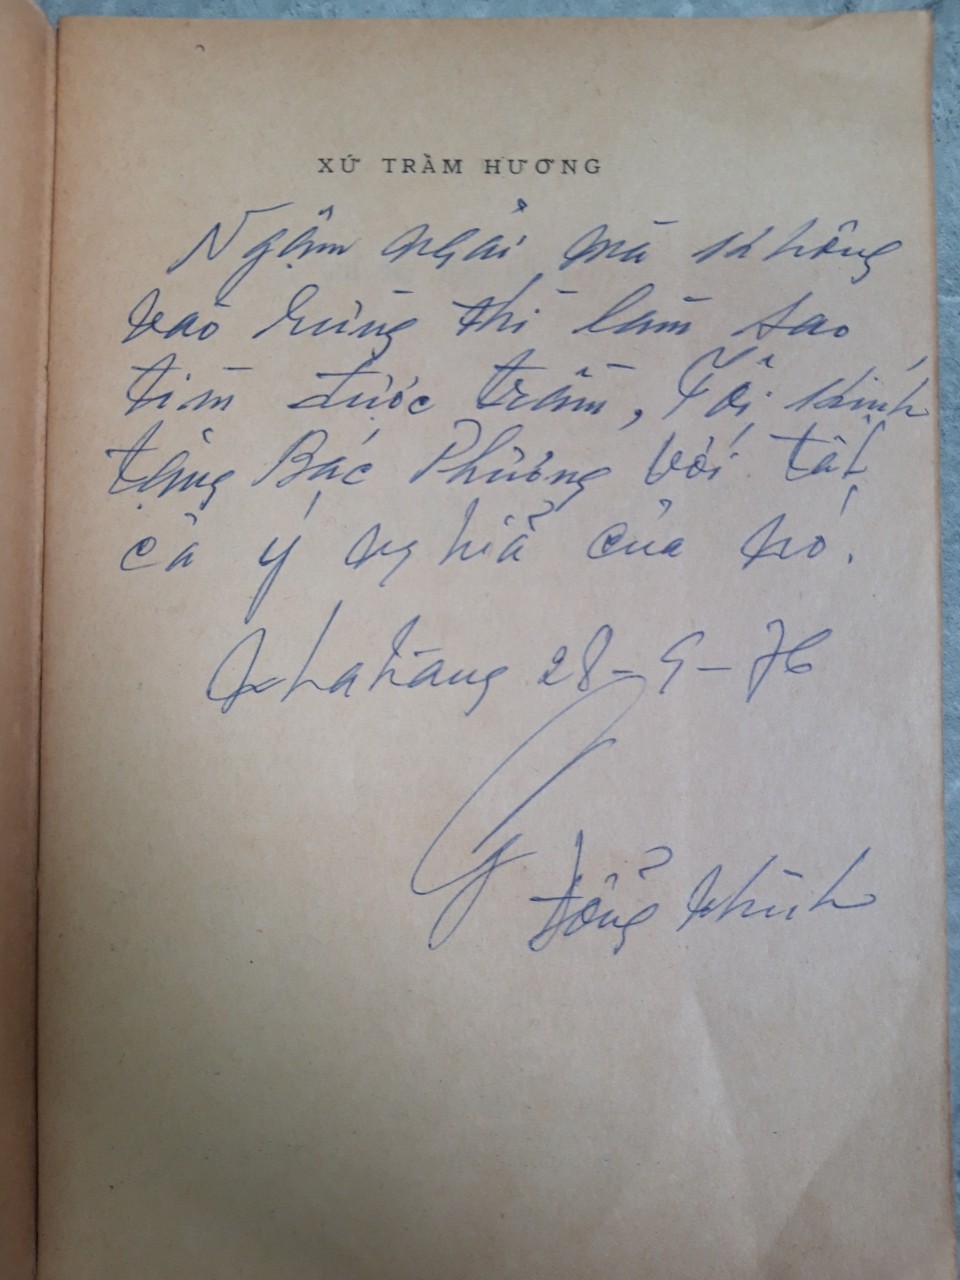 XỨ TRẦM HƯƠNG
Ngậm ngải mà không
vào rừng thì làm sao
tìm được trầm, Tôi kính
tặng Bác Phương với tất
cả ý nghĩa của nó.
Nhatrang 28-9-76
Đổng Khình